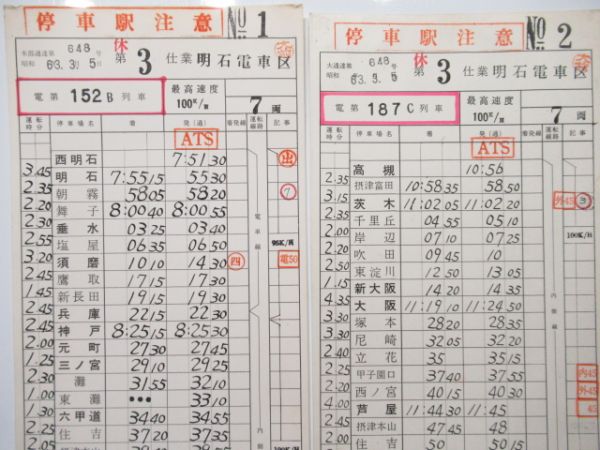 停車駅注意 No 1
本鉄運達第 648 号
昭和 63. 3. 5
休
第 3 仕業 明石電車区
電第 152B 列車
最高速度
100K/H
7 両
運転時分 停車場名 着 発(通) 着発線 運転線路 記事
ATS
西明石 7:51 30 出
3.45
明石 7:55 15 55 30
2.35
朝霧 58 05 58 20 7
2.20
舞子 8:00 40 8:00 55
2.30
垂水 03 25 03 40 電車線
2.55
塩屋 06 35 06 50 95K/H
3.20
須磨 10 10 14 30 四 電50
2.45
鷹取 17 15 17 30
1.45
新長田 19 15 19 30
2.45
兵庫 22 15 22 30
2.45
神戸 8:25 15 8:25 30
2.00
元町 27 30 27 45
1.25
三ノ宮 29 10 29 25
2.30
灘 31 55 32 10
1.00
東灘 ••• 33 10
1.30
六甲道 34 40 34 55
2.25
住吉 37 20 37 35 内側
2.05
100K/H
停車駅注意 No 2
大運達第 648 号
昭和 63. 3. 5
休
第 3 仕業 明石電車区
電第 187C 列車
最高速度
100K/H
7 両
運転時分 停車場名 着 発(通) 着発線 運転線路 記事
ATS
高槻 10:56
2.35
摂津富田 10:58 35 58 50
3.15
茨木 11:02 05 11:02 20 外45
2.35
千里丘 04 55 05 10
岸辺 07 10 07 25 100K/H
2.20
吹田 09 45 10
東淀川 12 50 13 05
新大阪 14 20 14 35
大阪 11:19 10 11:24 50 内側線
塚本 28 20 28 35
尼崎 32 05 32 20
立花 35 35 15
甲子園口 37 40 37 55 内45
西ノ宮 40 15 40 30 外45
芦屋 11:44 30 11:45 45
摂津本山 47 45 48
住吉 50 50 15